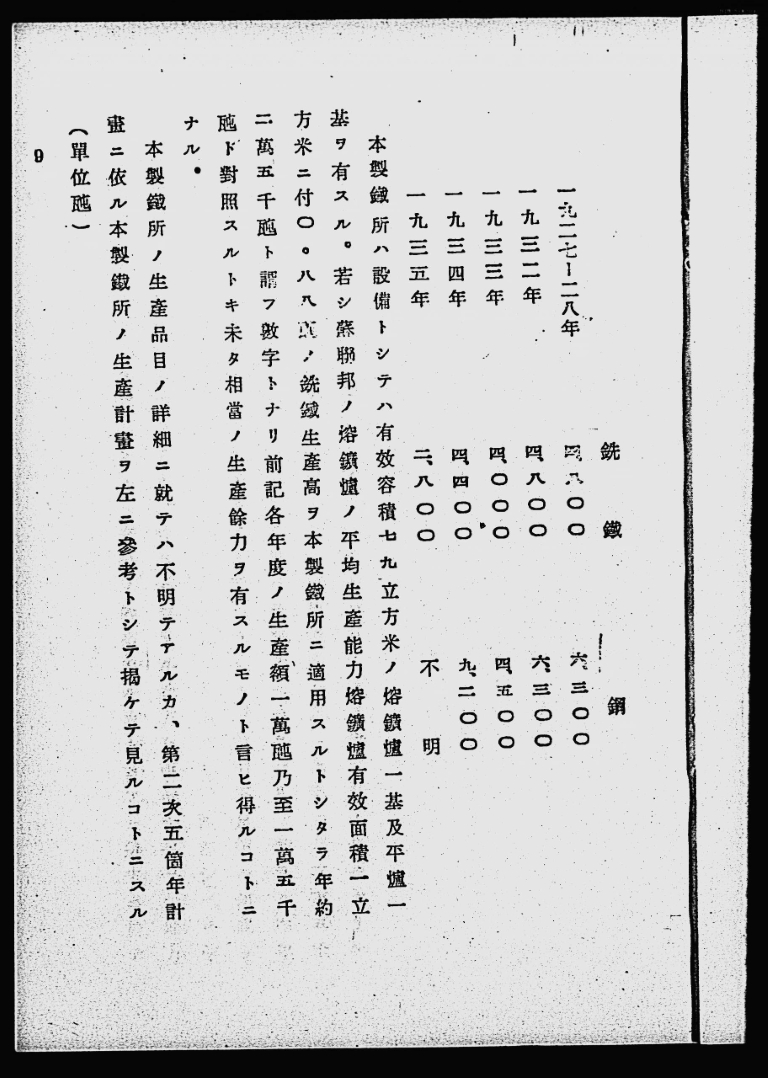 銑鐵 鋼
一九二七—二八年 四、八〇〇 六、三〇〇
一九三二年 四、八〇〇 六、三〇〇
一九三三年 四、〇〇〇 四、五〇〇
一九三四年 四、四〇〇 九、二〇〇
一九三五年 二、八〇〇 不明
本製鐵所ハ設備トシテハ有效容積七九立方米ノ熔鑛爐一基及平爐一
基ヲ有スル。若シ蘇聯邦ノ熔鑛爐ノ平均生產能力熔鑛爐有效面積一立
方米ニ付〇。八八瓲ノ銑鐵生產高ヲ本製鐵所ニ適用スルトシタラ年約
二萬五千瓲ト謂フ數字トナリ前記各年度ノ生產額一萬瓲乃至一萬五千
瓲ト對照スルトキ未タ相當ノ生產餘力ヲ有スルモノト言ヒ得ルコトニ
ナル。
本製鐵所ノ生產品目ノ詳細ニ就テハ不明テアルカ、第二次五箇年計
畫ニ依ル本製鐵所ノ生產計畫ヲ左ニ參考トシテ揭ケテ見ルコトニスル
(單位瓲)
9